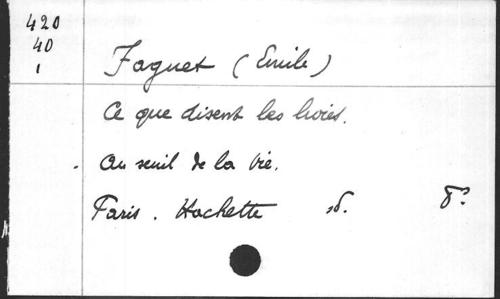 420
40
1
Faguet (Emile)
Ce que disent les livres.
Au seuil de la vie.
Paris. Hachette sd. 8°